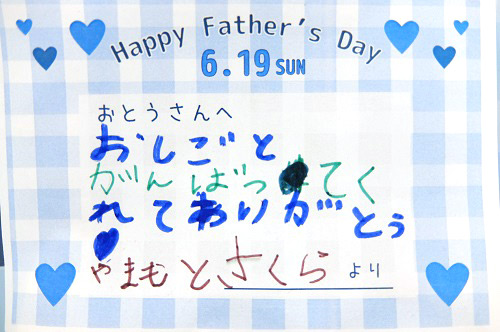 Happy Father's Day
6.19 SUN
おとうさんへ
おしごと
がんばってく
れてありがとう
やまもとさくら より